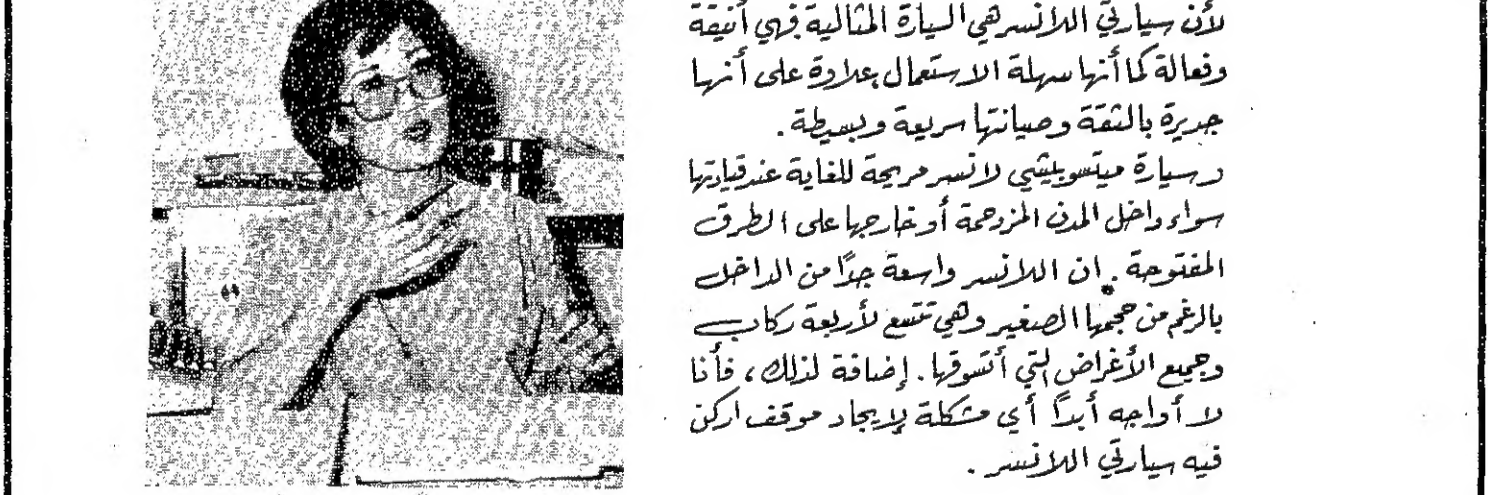 لأن سيارتي اللانسر هي السيارة المثالية فهي أنيقة
وفعالة كما أنها سهلة الاستعمال علاوة على أنها
جديرة بالثقة وصيانتها سريعة وبسيطة.
وسيارة ميتسوبيشي لانسر مريحة للغاية عند قيادتها
سواء داخل المدن المزدحمة أو خارجها على الطرق
المفتوحة. ان اللانسر واسعة جدًا من الداخل
بالرغم من حجمها الصغير وهي تتسع لأربعة ركاب
وجميع الأغراض التي أتسوقها. إضافة لذلك، فأنا
لا أواجه أبدًا أي مشكلة لإيجاد موقف اركن
فيه سيارتي اللانسر.